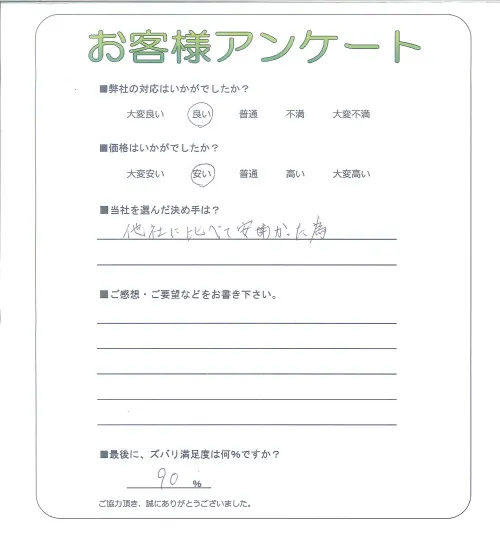 お客様アンケート
■弊社の対応はいかがでしたか？
大変良い 良い 普通 不満 大変不満
■価格はいかがでしたか？
大変安い 安い 普通 高い 大変高い
■当社を選んだ決め手は？
他社に比べて安価かった為
■ご感想・ご要望などをお書き下さい。
■最後に、ズバリ満足度は何%ですか？
90 %
ご協力頂き、誠にありがとうございました。